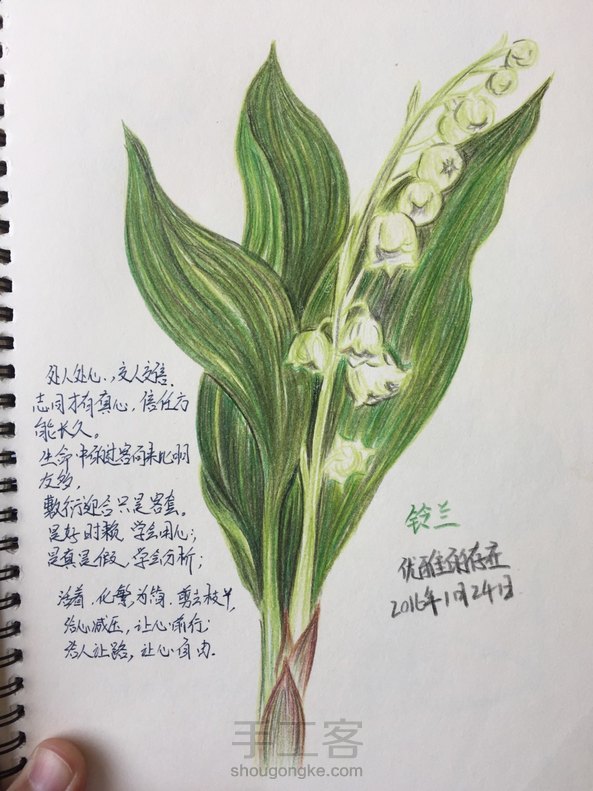 处人处心,交人交信.
志同才有真心,信任方
能长久。
生命中的过客向来比朋
友多,
敷衍迎合只是客套。
是好时赖,学会用心;
是真是假,学会分析;
活着,化繁为简,剪去枝丫,
给心减压,让心前行;
给人让路,让心自由.
铃兰
优雅的存在
2016年1月24日
手工客
shougongke.com